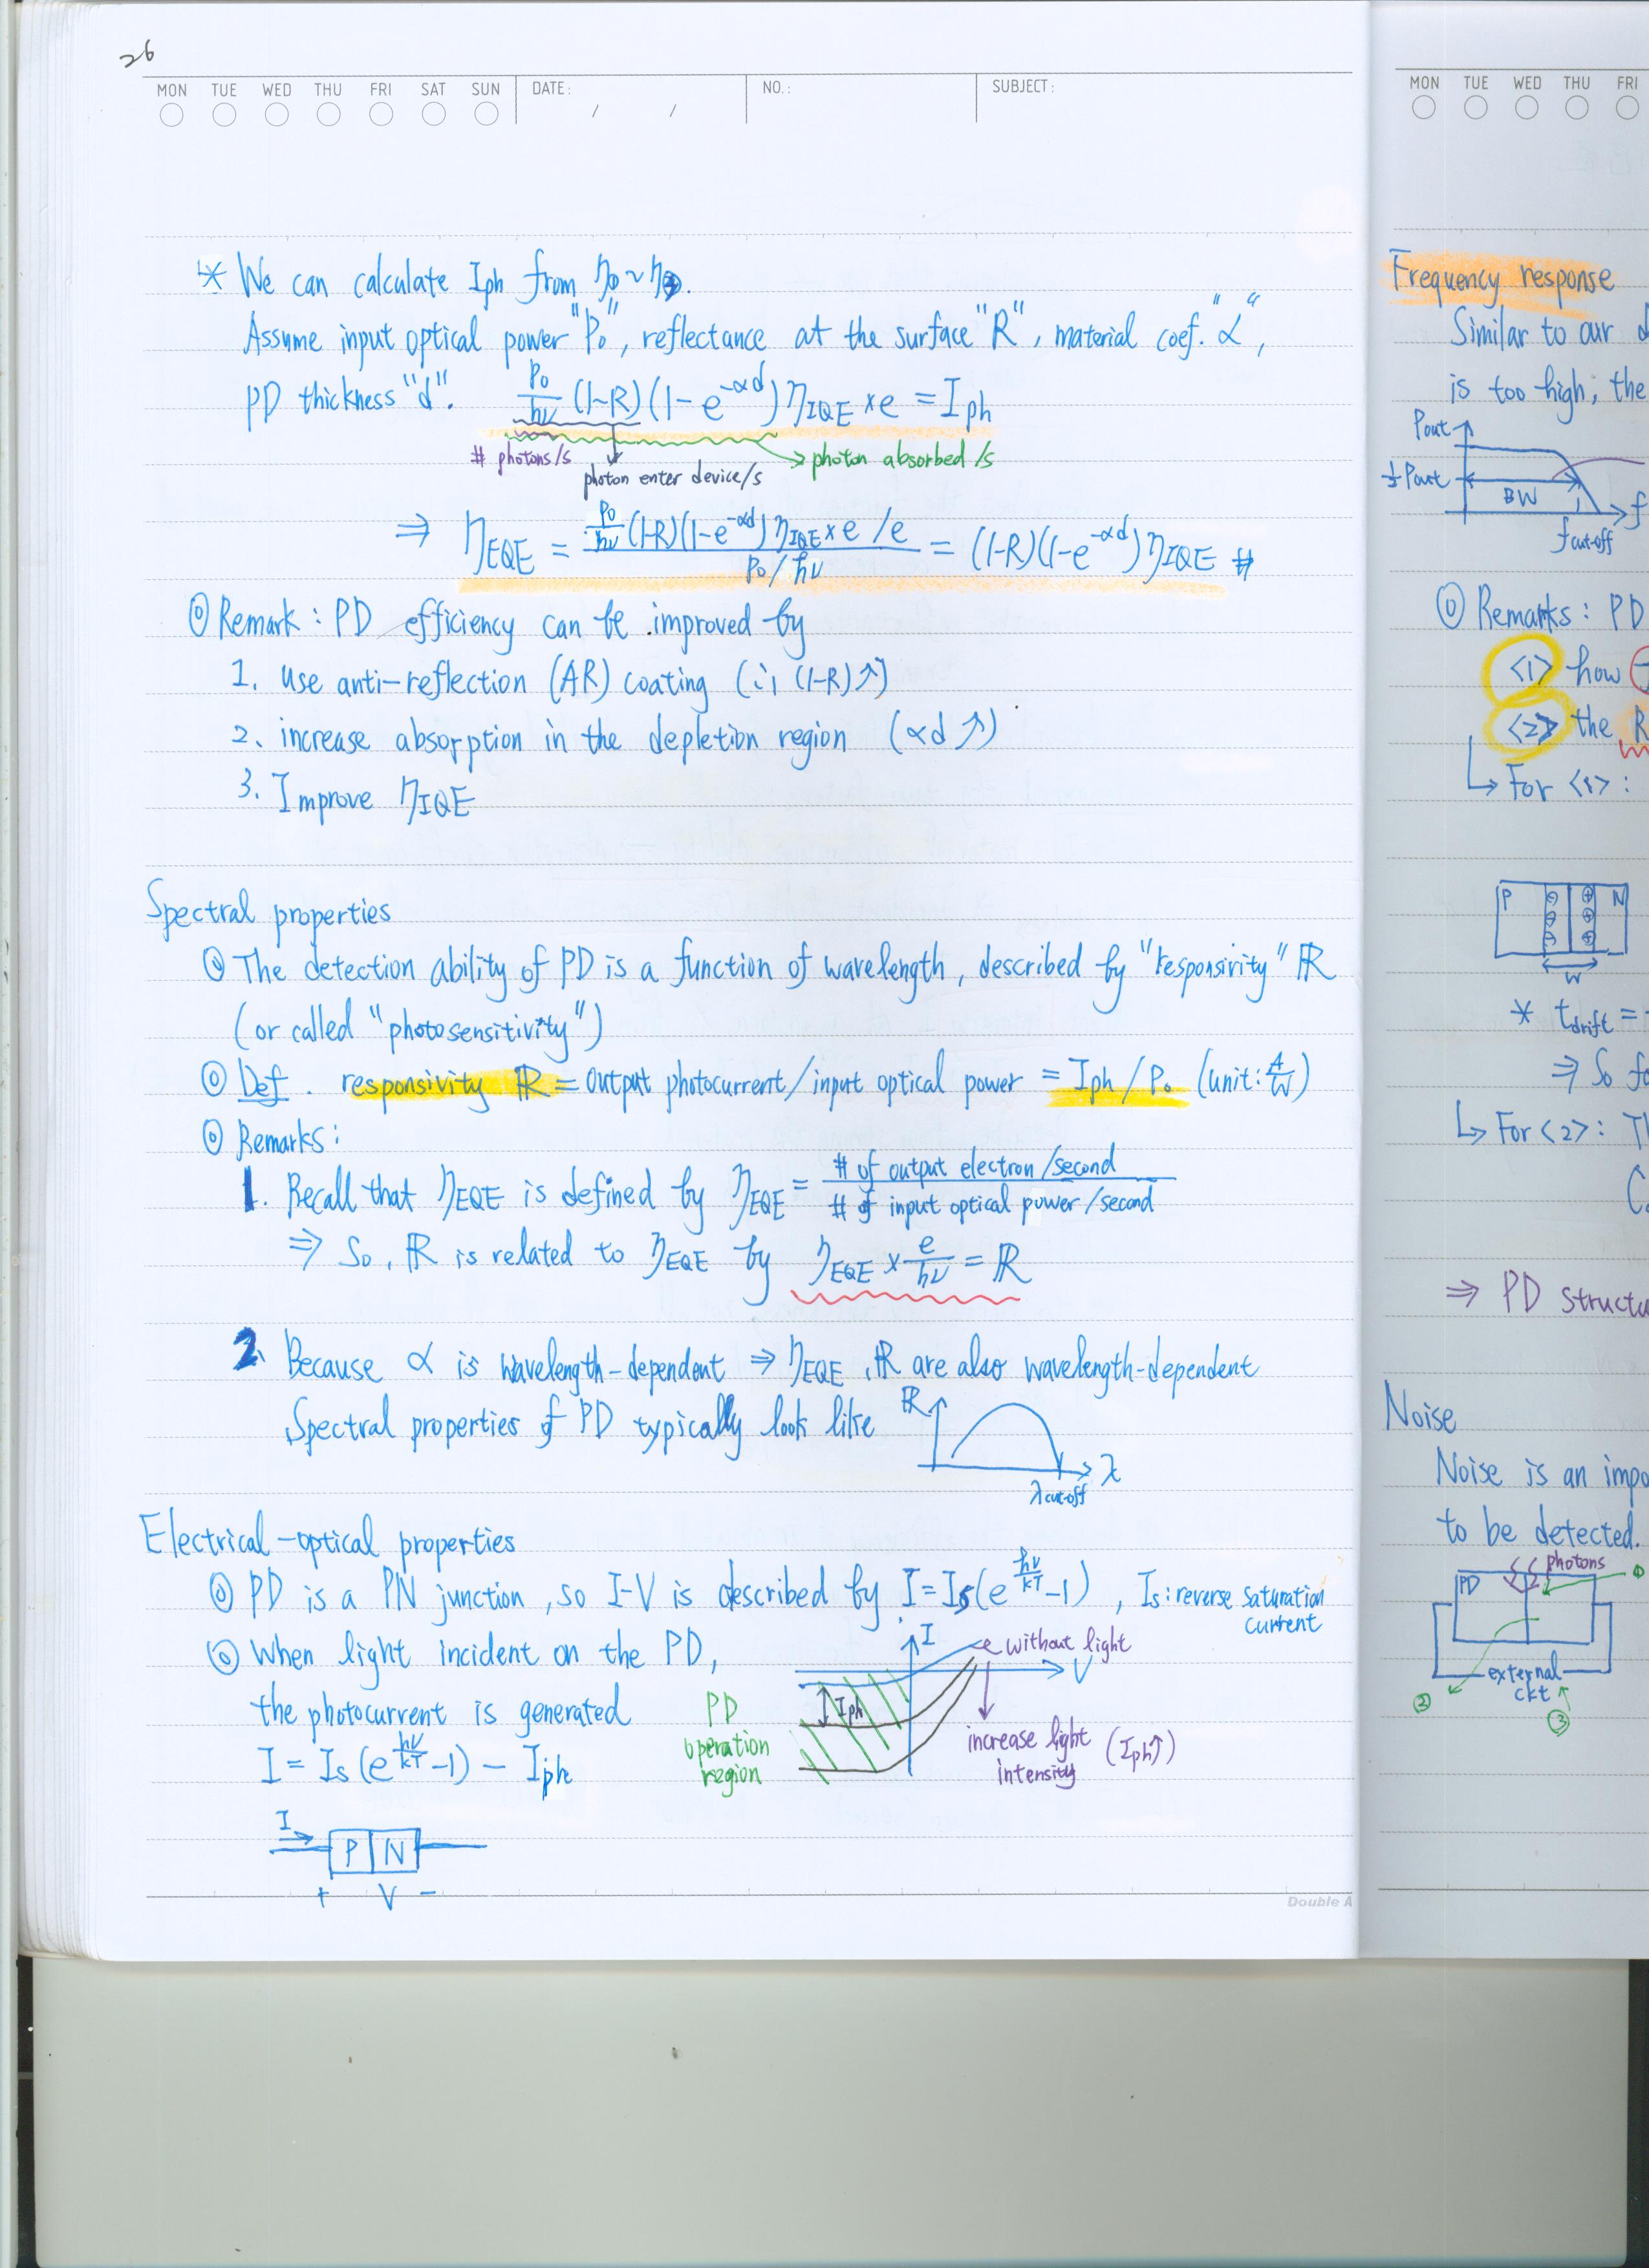 26
MON TUE WED THU FRI SAT SUN DATE: / / NO.: SUBJECT:
* We can calculate Iph from
Assume input optical power "P₀", reflectance at the surface "R", material coef. "α",
PD thickness "d". P₀/hν (1-R)(1-e^-αd) η_IQE × e = Iph
# photons/s
photon enter device/s
photon absorbed/s
⇒ η_EQE = P₀/hν (1-R)(1-e^-αd) η_IQE × e / e / P₀/hν = (1-R)(1-e^-αd) η_IQE #
◎ Remark: PD efficiency can be improved by
1. use anti-reflection (AR) coating (∵ (1-R)↑)
2. increase absorption in the depletion region (αd ↑)
3. Improve η_IQE
Spectral properties
◎ The detection ability of PD is a function of wavelength, described by "responsivity" ℝ
(or called "photosensitivity")
◎ Def. responsivity ℝ = output photocurrent/input optical power = Iph / P₀ (unit: A/W)
◎ Remarks:
1. Recall that η_EQE is defined by η_EQE = # of output electron/second / # of input optical power/second
⇒ So, ℝ is related to η_EQE by η_EQE × e/hν = ℝ
2. Because α is wavelength-dependent ⇒ η_EQE, ℝ are also wavelength-dependent
Spectral properties of PD typically look like
ℝ
λ
λcut-off
Electrical-optical properties
◎ PD is a PN junction, so I-V is described by I = Is(e^hν/kT -1), Is: reverse saturation
current
◎ When light incident on the PD,
the photocurrent is generated
I = Is(e^hν/kT -1) - Iph
I
without light
V
Iph
PD
operation
region
increase light
intensity (Iph↑)
I
P N
+ V -
Double A
MON TUE WED THU FRI
Frequency response
Similar to our
is too high, the
Pout
½ Pout
BW
f
fcut-off
◎ Remarks: PD
<1> how
<2> the R
↳ For <1>:
P N
W
* tdrift =
⇒ So
↳ For <2>:
⇒ PD
Noise
Noise is an
to be detected.
photons
PD
①
external
ckt
②
③